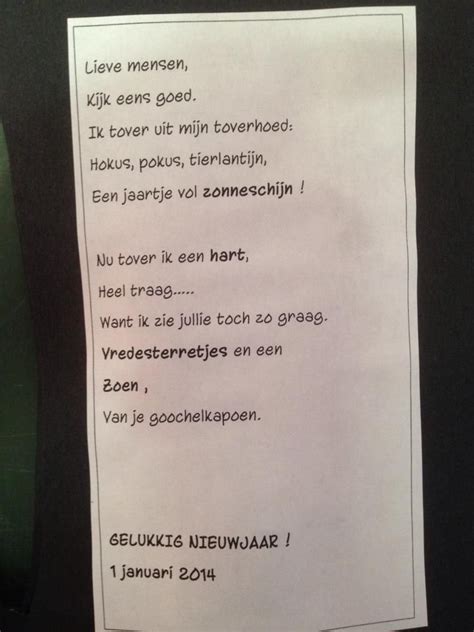 Lieve mensen,
Kijk eens goed.
Ik tover uit mijn toverhoed:
Hokus, pokus, tierlantijn,
Een jaartje vol zonneschijn !
Nu tover ik een hart,
Heel traag.....
Want ik zie jullie toch zo graag.
Vredesterretjes en een
Zoen ,
Van je goochelkapoen.
GELUKKIG NIEUWJAAR !
1 januari 2014